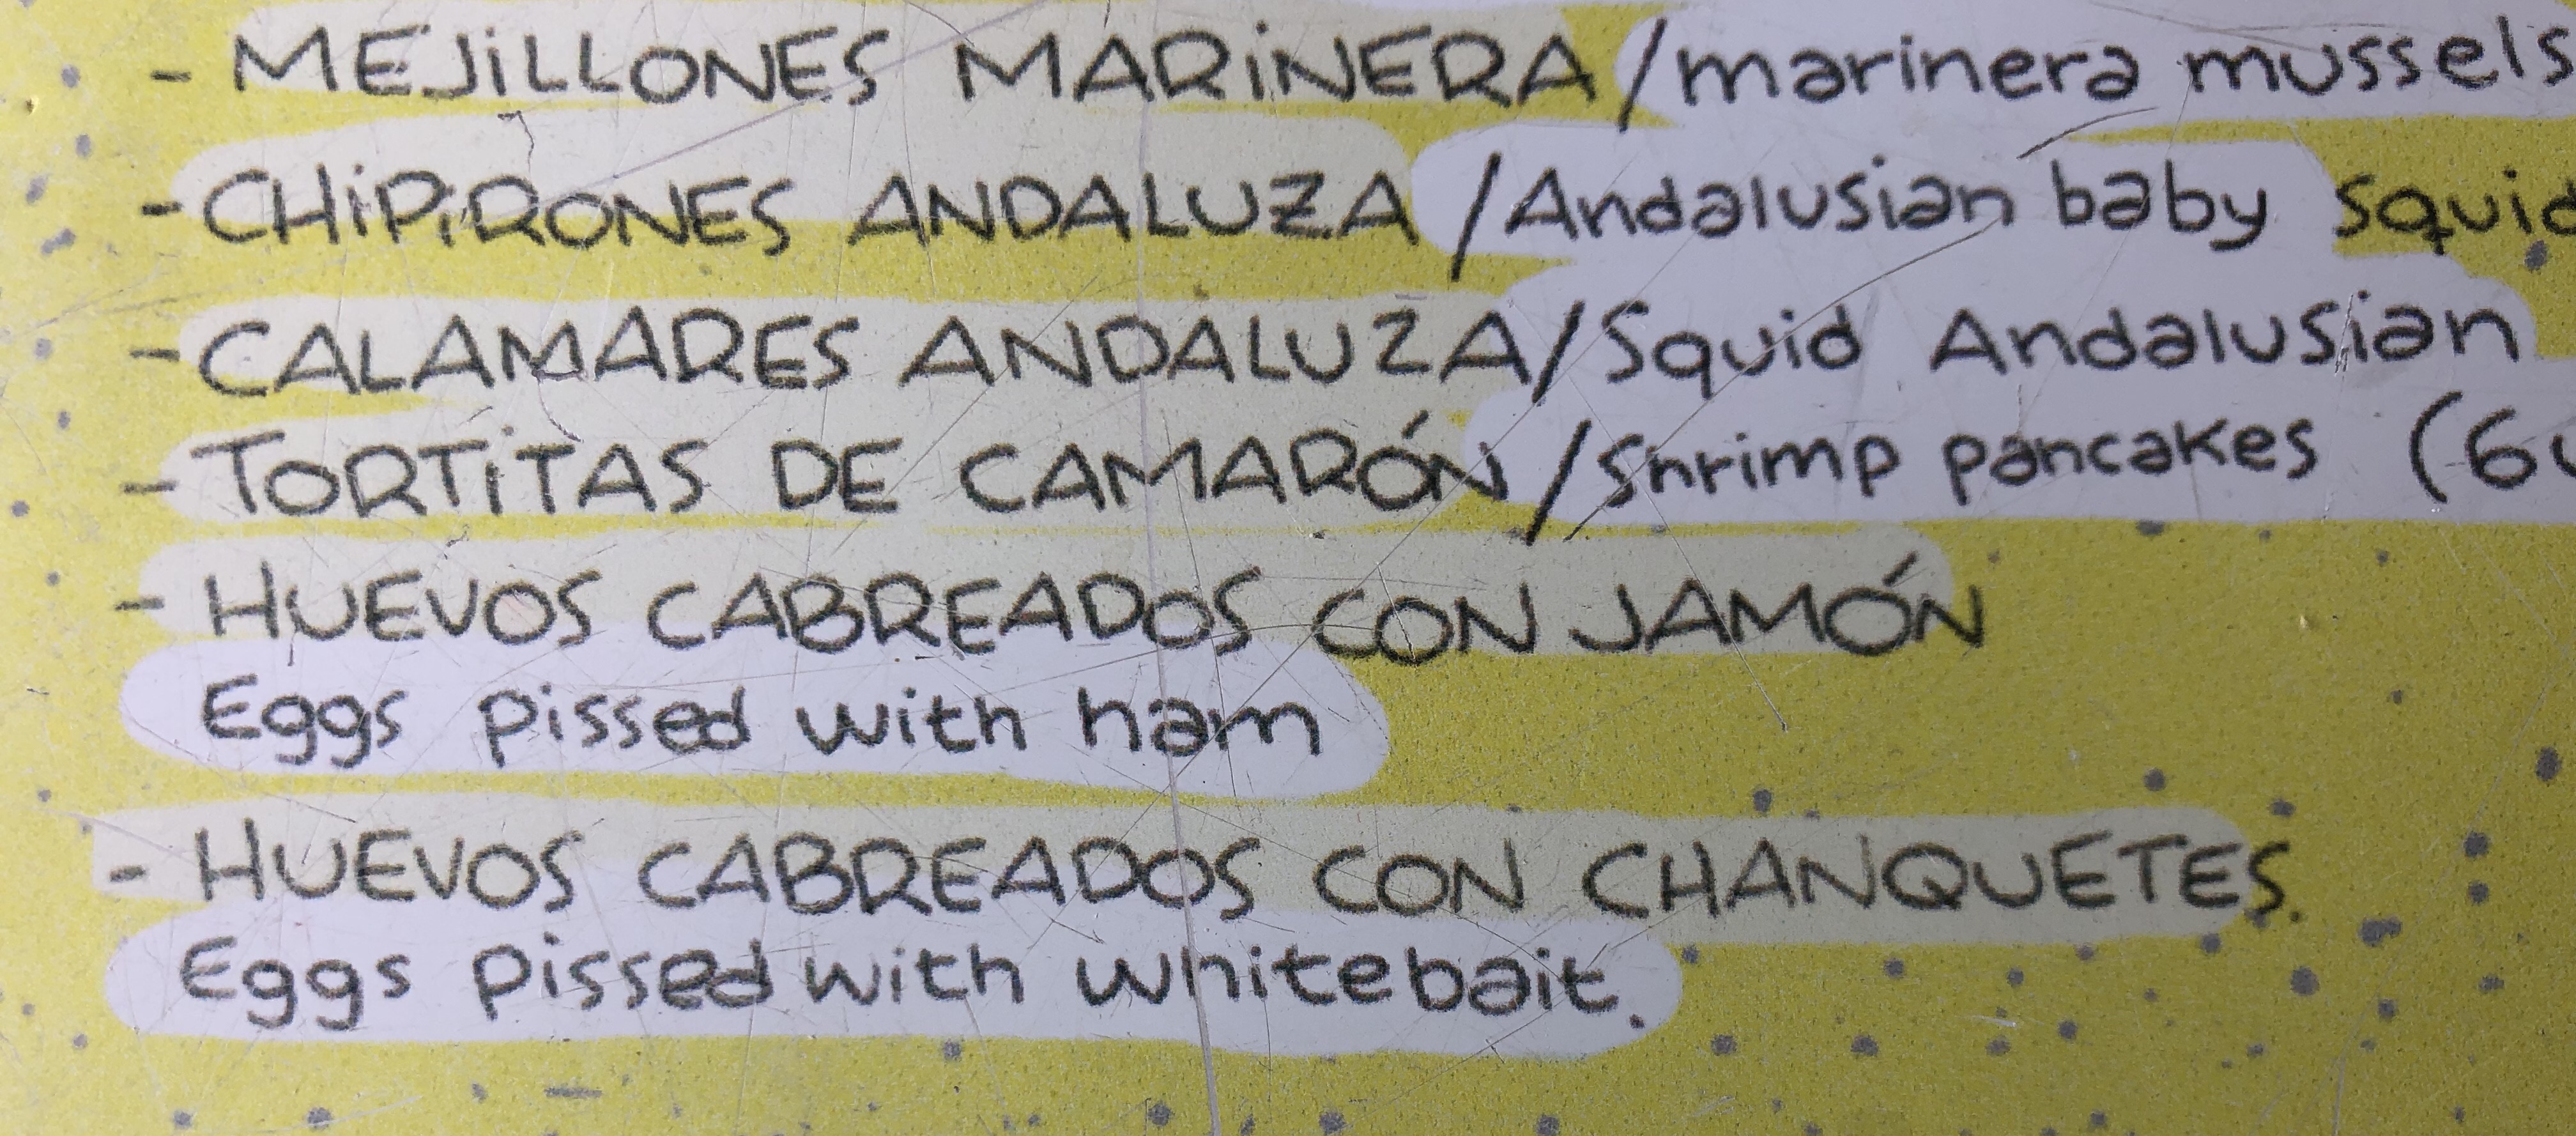 - MEJiLLONES MARiNERA/marinera mussels
- CHiPiRONES ANDALUZA/Andalusian baby squid
- CALAMARES ANDALUZA/Squid Andalusian
- TORTiTAS DE CAMARÓN/Shrimp pancakes (6
- HUEVOS CABREADOS CON JAMÓN
Eggs pissed with ham
- HUEVOS CABREADOS CON CHANQUETES.
Eggs pissed with whitebait.